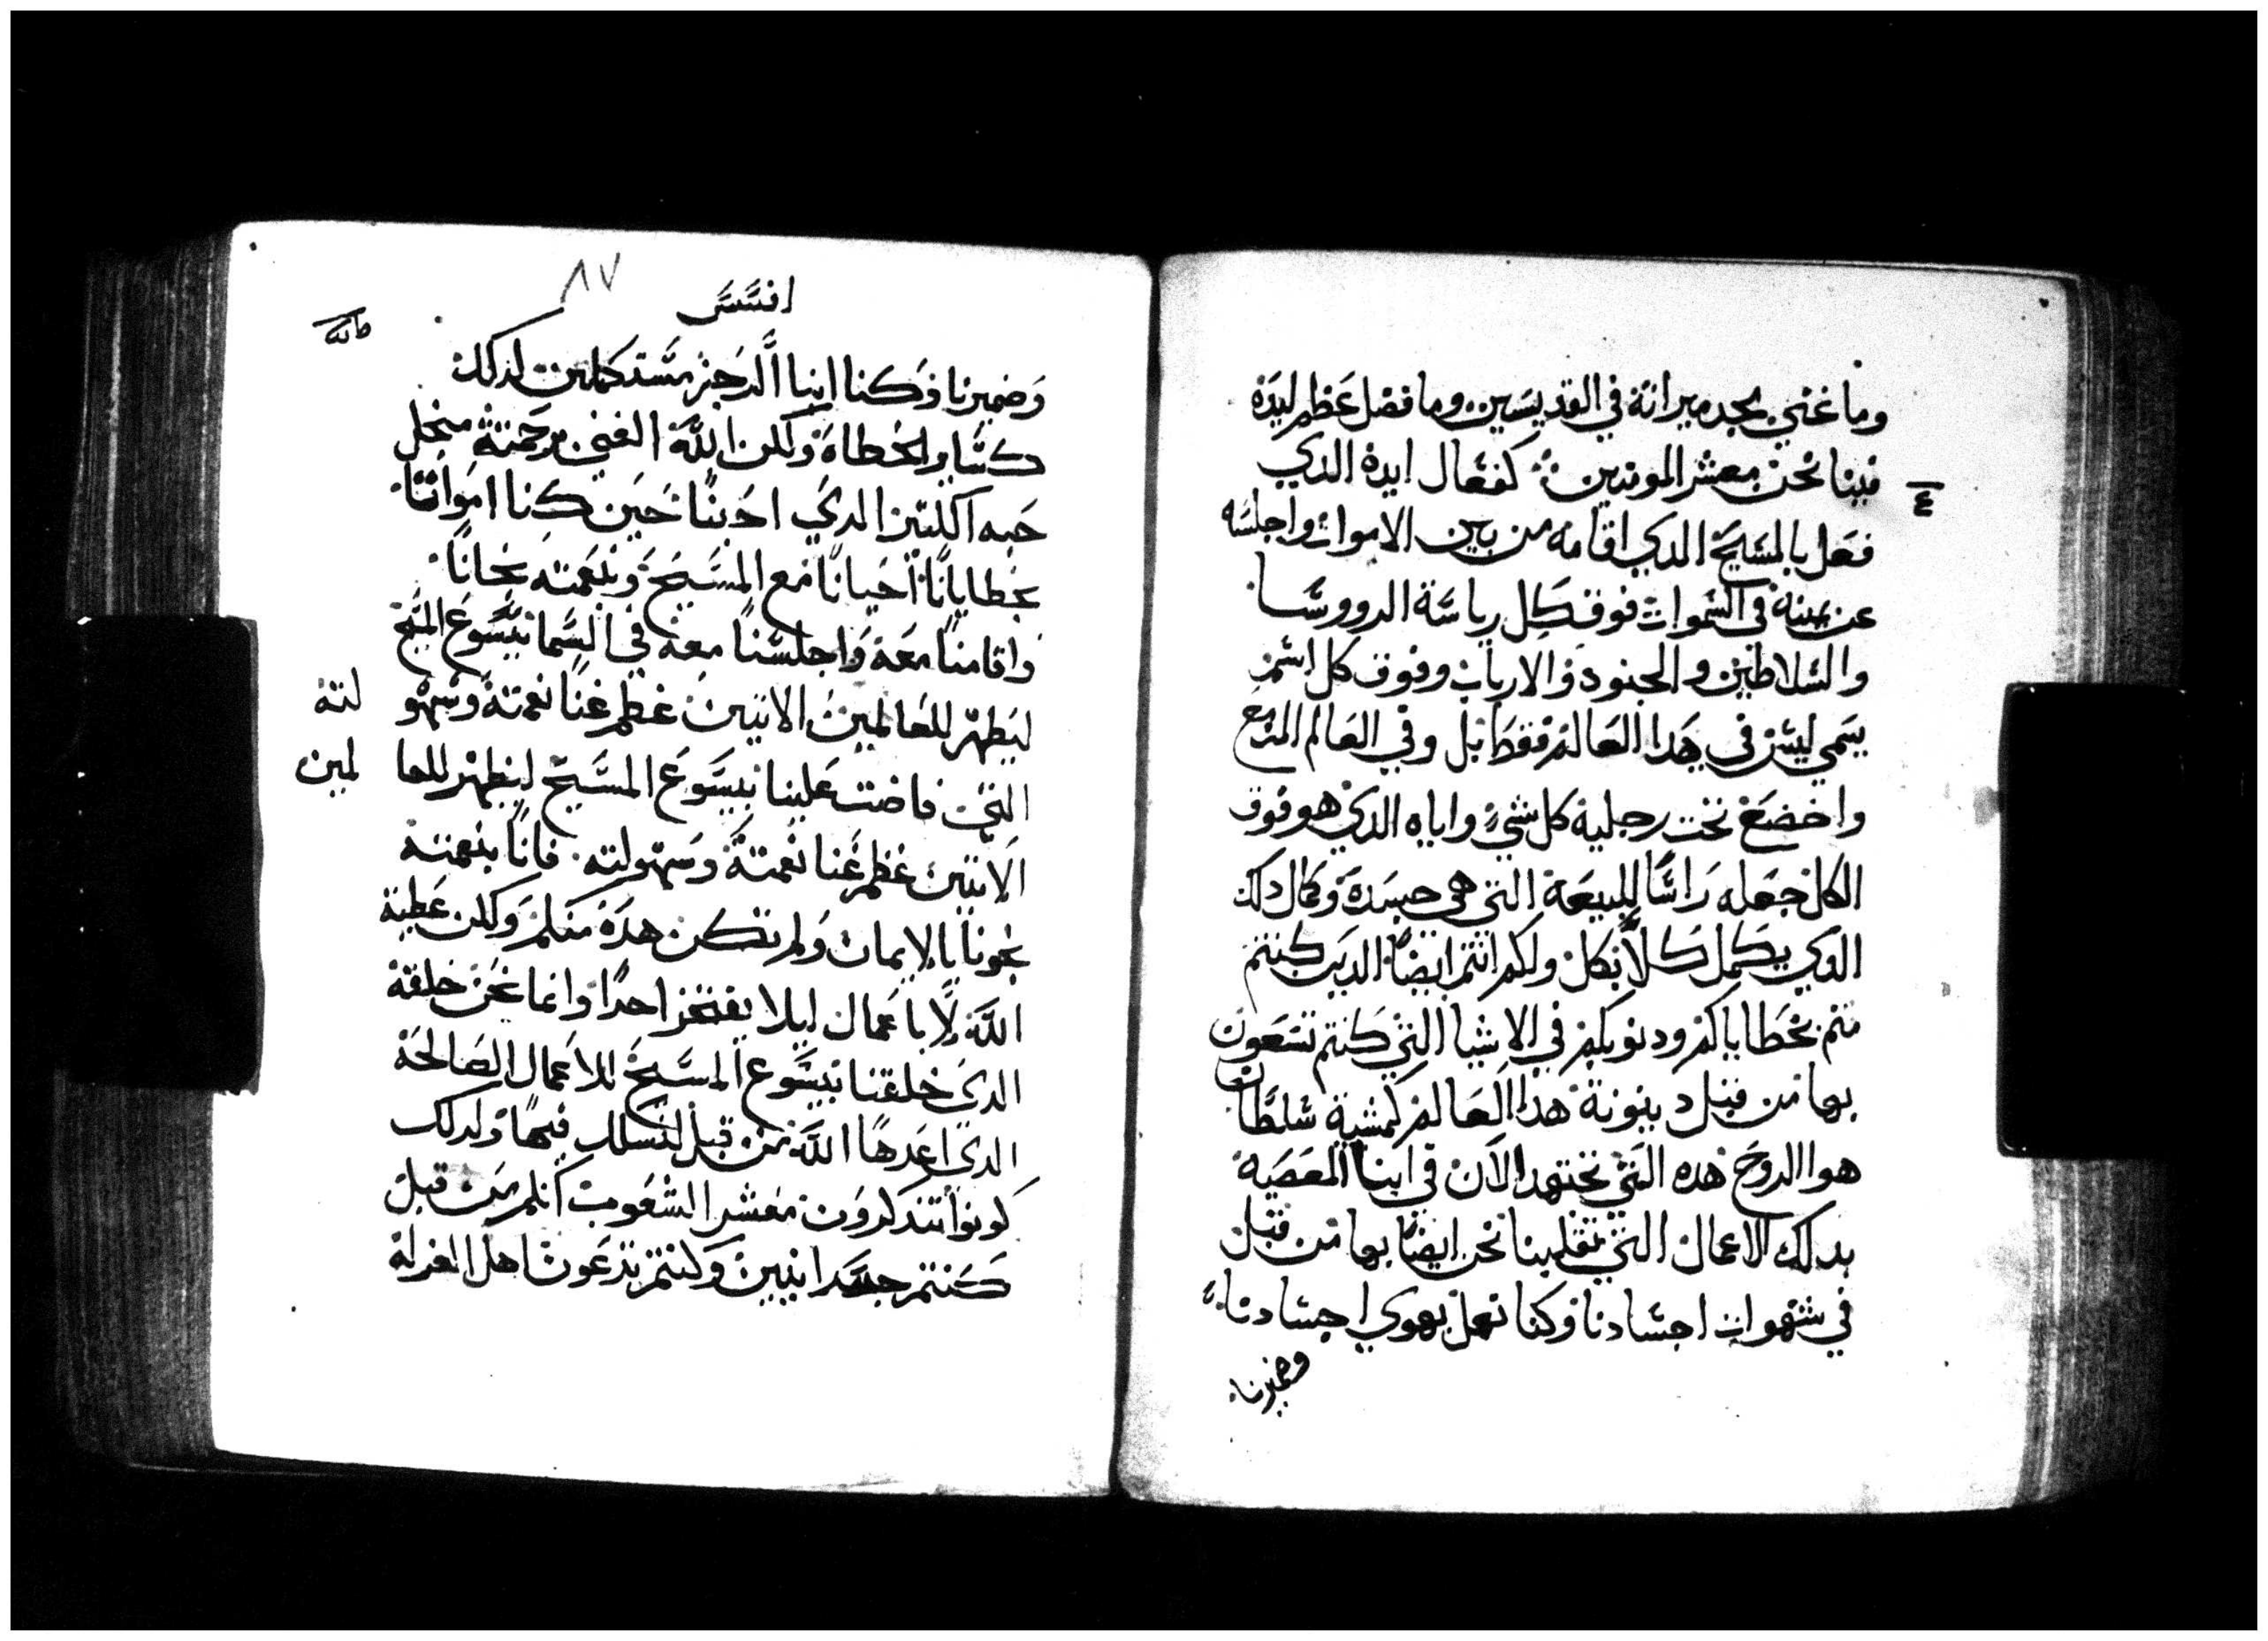 وما غني مجد ميراثة في القديسين وما فضل عظم ليدة
فينا نحن معشر المومنين كفعال ايدة الذي
فعل بالمسيح الدي اقامه من بين الاموات واجلسه
عن يمينه في السموات فوق كل رياسة الدووسا
والسلاطين والجنود والارباب وفوق كل اسم
يسمي ليس في هدا العالم فقط بل وفي العالم المزمع
واخضع تحت رجلية كل شي واياه الذي هو فوق
الكل جعله راسا للبيعة التي هي جسدة وكمال دلك
الذي يكمل كلا بكل ولكم انتم ايضا الدين كنتم
متم بخطاياكم ودنوبكم في الاشيا التي كنتم تسعون
بها من قبل دينونة هدا العالم كمشية سلطان
هوا الروح هده التي تجتهد الان في ابنا المعصية
بدلك الاعمال التي تقلبنا نحن ايضا بها من قبل
في شهوات اجسادنا وكنا نعمل بهوي اجسادنا
وضميرنا
٤
٨٧
افسس
وضميرنا وكنا ابنا الرجز مستكملين لدلك
كساير الخطاة ولكن اللة الغني برحمتة من اجل
حبه الكثير الدي احبنا حين كنا امواتا
بخطايانا احيانا مع المسيح وبنعمته نجانا
واقامنا معة واجلسنا معه في السما بيسوع المسيح
ليظهر للعالمين الاتيين عظم غنا نعمتة وسهو لتة
التي فاضت علينا بيسوع المسيح ليظهر للعا لمين
الاتيين عظم غنا نعمتة وسهولته فانا بنعمتة
نجونا بالايمان ولم تكن هدة منكم ولكن عطية
اللة لا باعمال ليلا يفتخر احدا وانما نحن خلقة
الدي خلقنا بيسوع المسيح للاعمال الصالحة
الدي اعدها اللة من قبل لنسلك فيها ولدلك
كونوا تتدكرون معشر الشعوب انكم من قبل
كنتم جسدانيين وكنتم تدعون اهل الغرلة